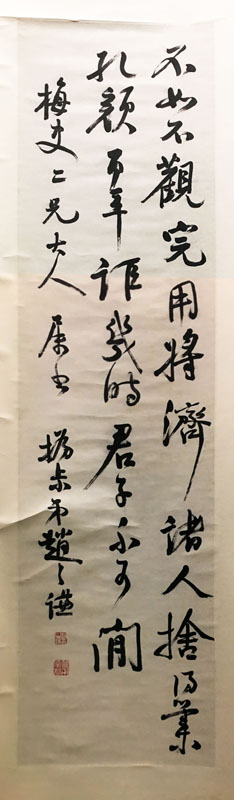 不如不觀完用將濟諸人捨得業
孔顏百年詎幾時君子不可閒
梅史二兄大人屬書 撝叔弟趙之謙